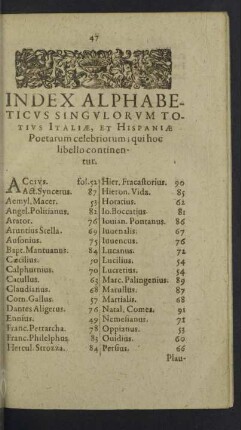 47
INDEX ALPHABE-
TICVS SINGVLORVM TO-
TIVS ITALIÆ, ET HISPANIÆ
Poetarum celebriorum; qui hoc
libello continen-
tur.
ACCIVS. fol.52
Act. Syncerus. 87
Aemyl. Macer. 53
Angel. Politianus. 82
Arator. 76
Aruntius Stella. 69
Ausonius. 75
Bapt. Mantuanus. 84
Cæcilius. 50
Calphurnius. 70
Catullus. 63
Claudianus. 68
Corn. Gallus. 57
Dantes Aligerus. 76
Ennius. 49
Franc. Petrarcha. 78
Franc. Philelphus. 83
Hercul. Strozza. 84
Hier. Fracastorius. 90
Hieron. Vida. 85
Horatius. 62
Io. Boccatius 81
Iouian. Pontanus. 86
Iuuenalis. 67
Iuuencus. 76
Lucanus. 72
Lucilius. 54
Lucretius. 54
Marc. Palingenius. 89
Marullus. 87
Martialis. 68
Natal. Comes. 91
Nemesianus. 71
Oppianus. 53
Ouidius. 60
Persius. 66
Plau-